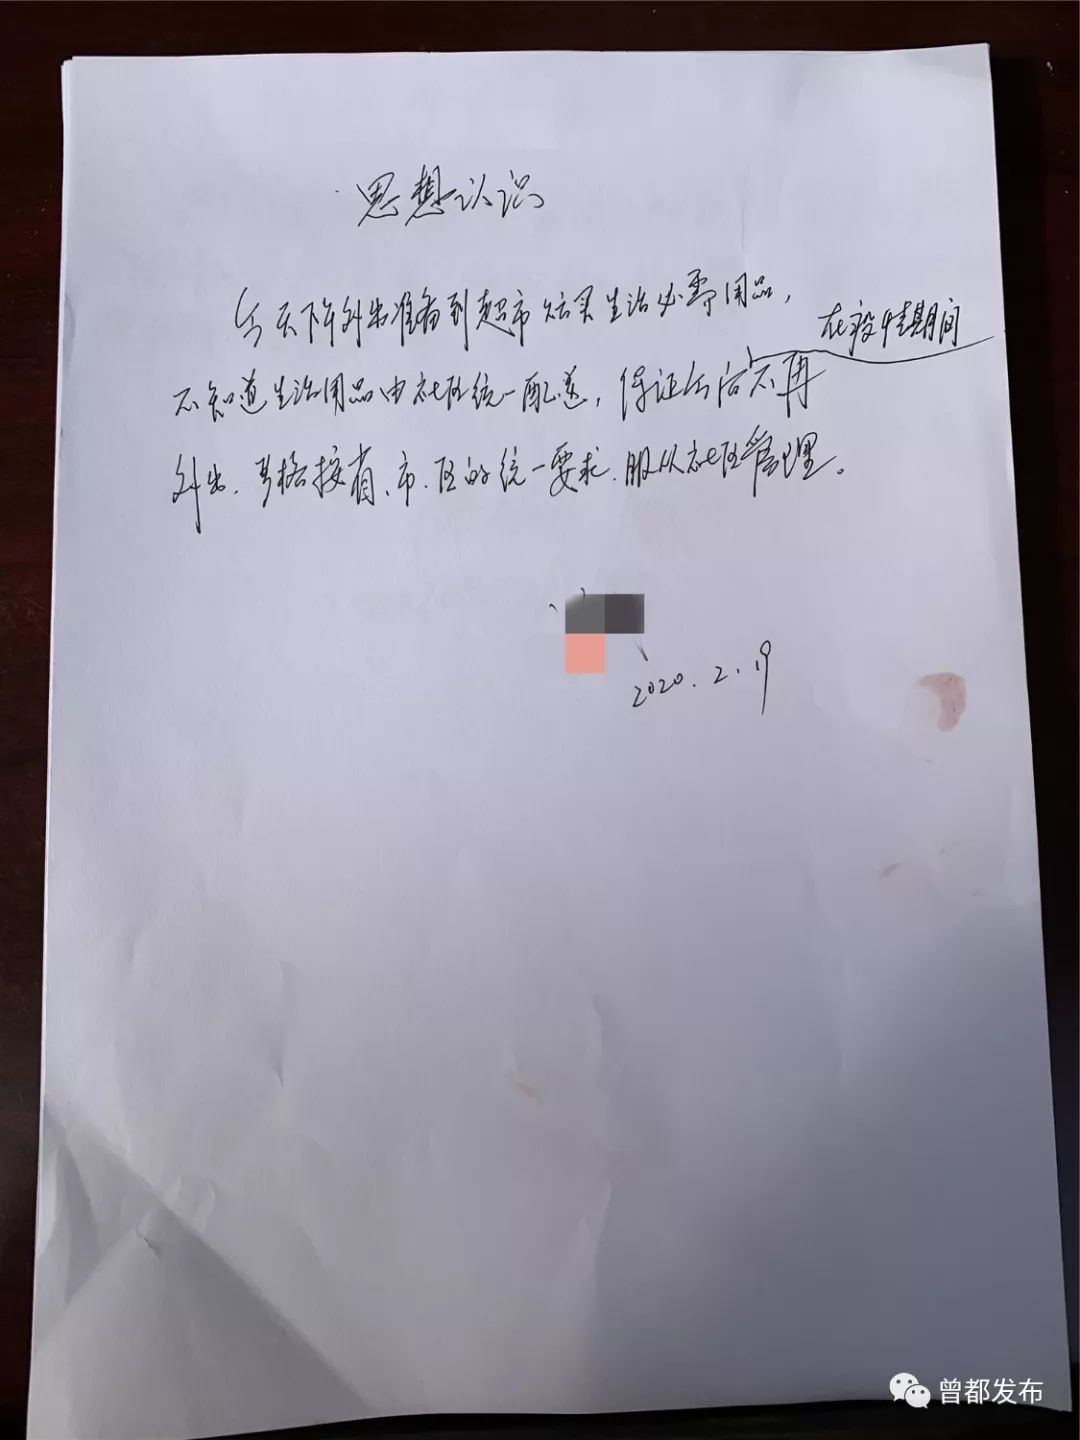 思想认识
今天下午外出准备到超市购买生活必需用品，
在疫情期间
不知道生活用品由社区统一配送，保证今后不再
外出，严格按省、市、区的统一要求，服从社区管理。
2020.2.19
曾都发布